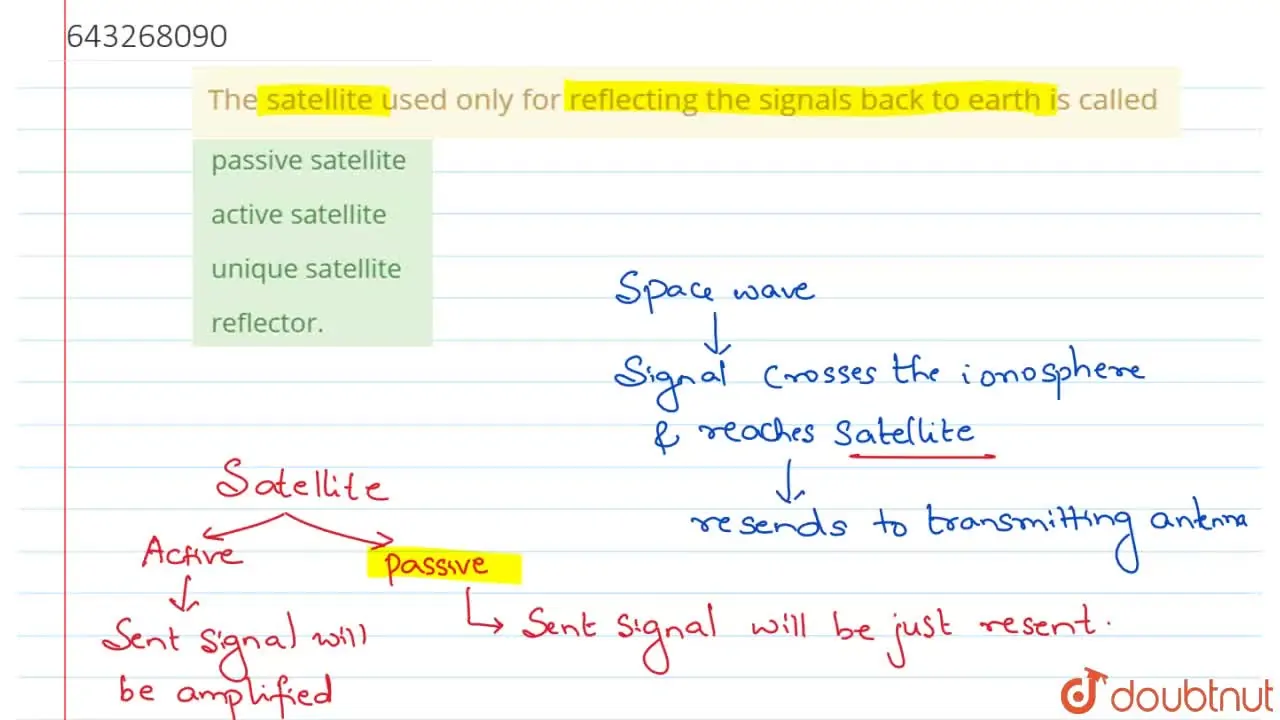 643268090
The satellite used only for reflecting the signals back to earth is called
passive satellite
active satellite
unique satellite
reflector.
Space wave
Signal crosses the ionosphere
& reaches satellite
resends to transmitting antenna
Satellite
Active
passive
Sent signal will
be amplified
Sent signal will be just resent.
doubtnut